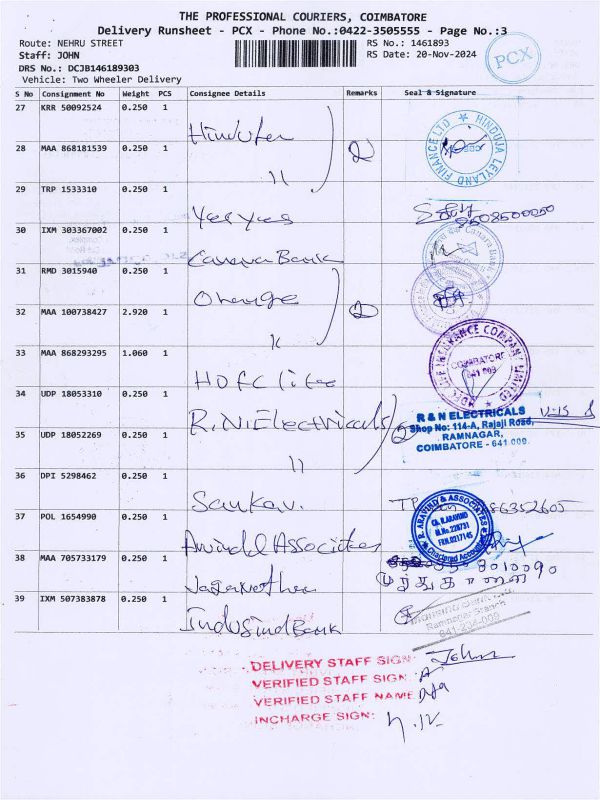 THE PROFESSIONAL COURIERS, COIMBATORE
Delivery Runsheet - PCX - Phone No.:0422-3505555 - Page No.:3
Route: NEHRU STREET
Staff: JOHN
DRS No.: DCJB146189303
Vehicle: Two Wheeler Delivery
RS No.: 1461893
RS Date: 20-Nov-2024
PCX
S No Consignment No Weight PCS Consignee Details Remarks Seal & Signature
27 KRR 50092524 0.250 1
HINDUJA LEYLAND FINANCE LTD
28 MAA 868181539 0.250 1 2
29 TRP 1533310 0.250 1 Yes yes
30 IXM 303367002 0.250 1 Canara Bank
Canara Bank
31 RMD 3015940 0.250 1 Orange
32 MAA 100738427 2.920 1 2
33 MAA 868293295 1.060 1 HDFC life
LIFE INSURANCE COMPANY LIMITED
COIMBATORE
641 009
34 UDP 18053310 0.250 1 R.N Electricals
R & N ELECTRICALS
Shop No: 114-A, Rajaji Road,
RAMNAGAR,
COIMBATORE - 641 009.
35 UDP 18052269 0.250 1 11 2
36 DPI 5298462 0.250 1 Sankar.
37 POL 1654990 0.250 1 Associates
R. ARAVIND & ASSOCIATES
CA. R.ARAVIND
M.No.228731
FRN.021714S
Chartered Accountants
38 MAA 705733179 0.250 1
39 IXM 507383878 0.250 1 IndusindBank
Ramnagar Branch
DELIVERY STAFF SIGN: John
VERIFIED STAFF SIGN:
VERIFIED STAFF NAME
INCHARGE SIGN: